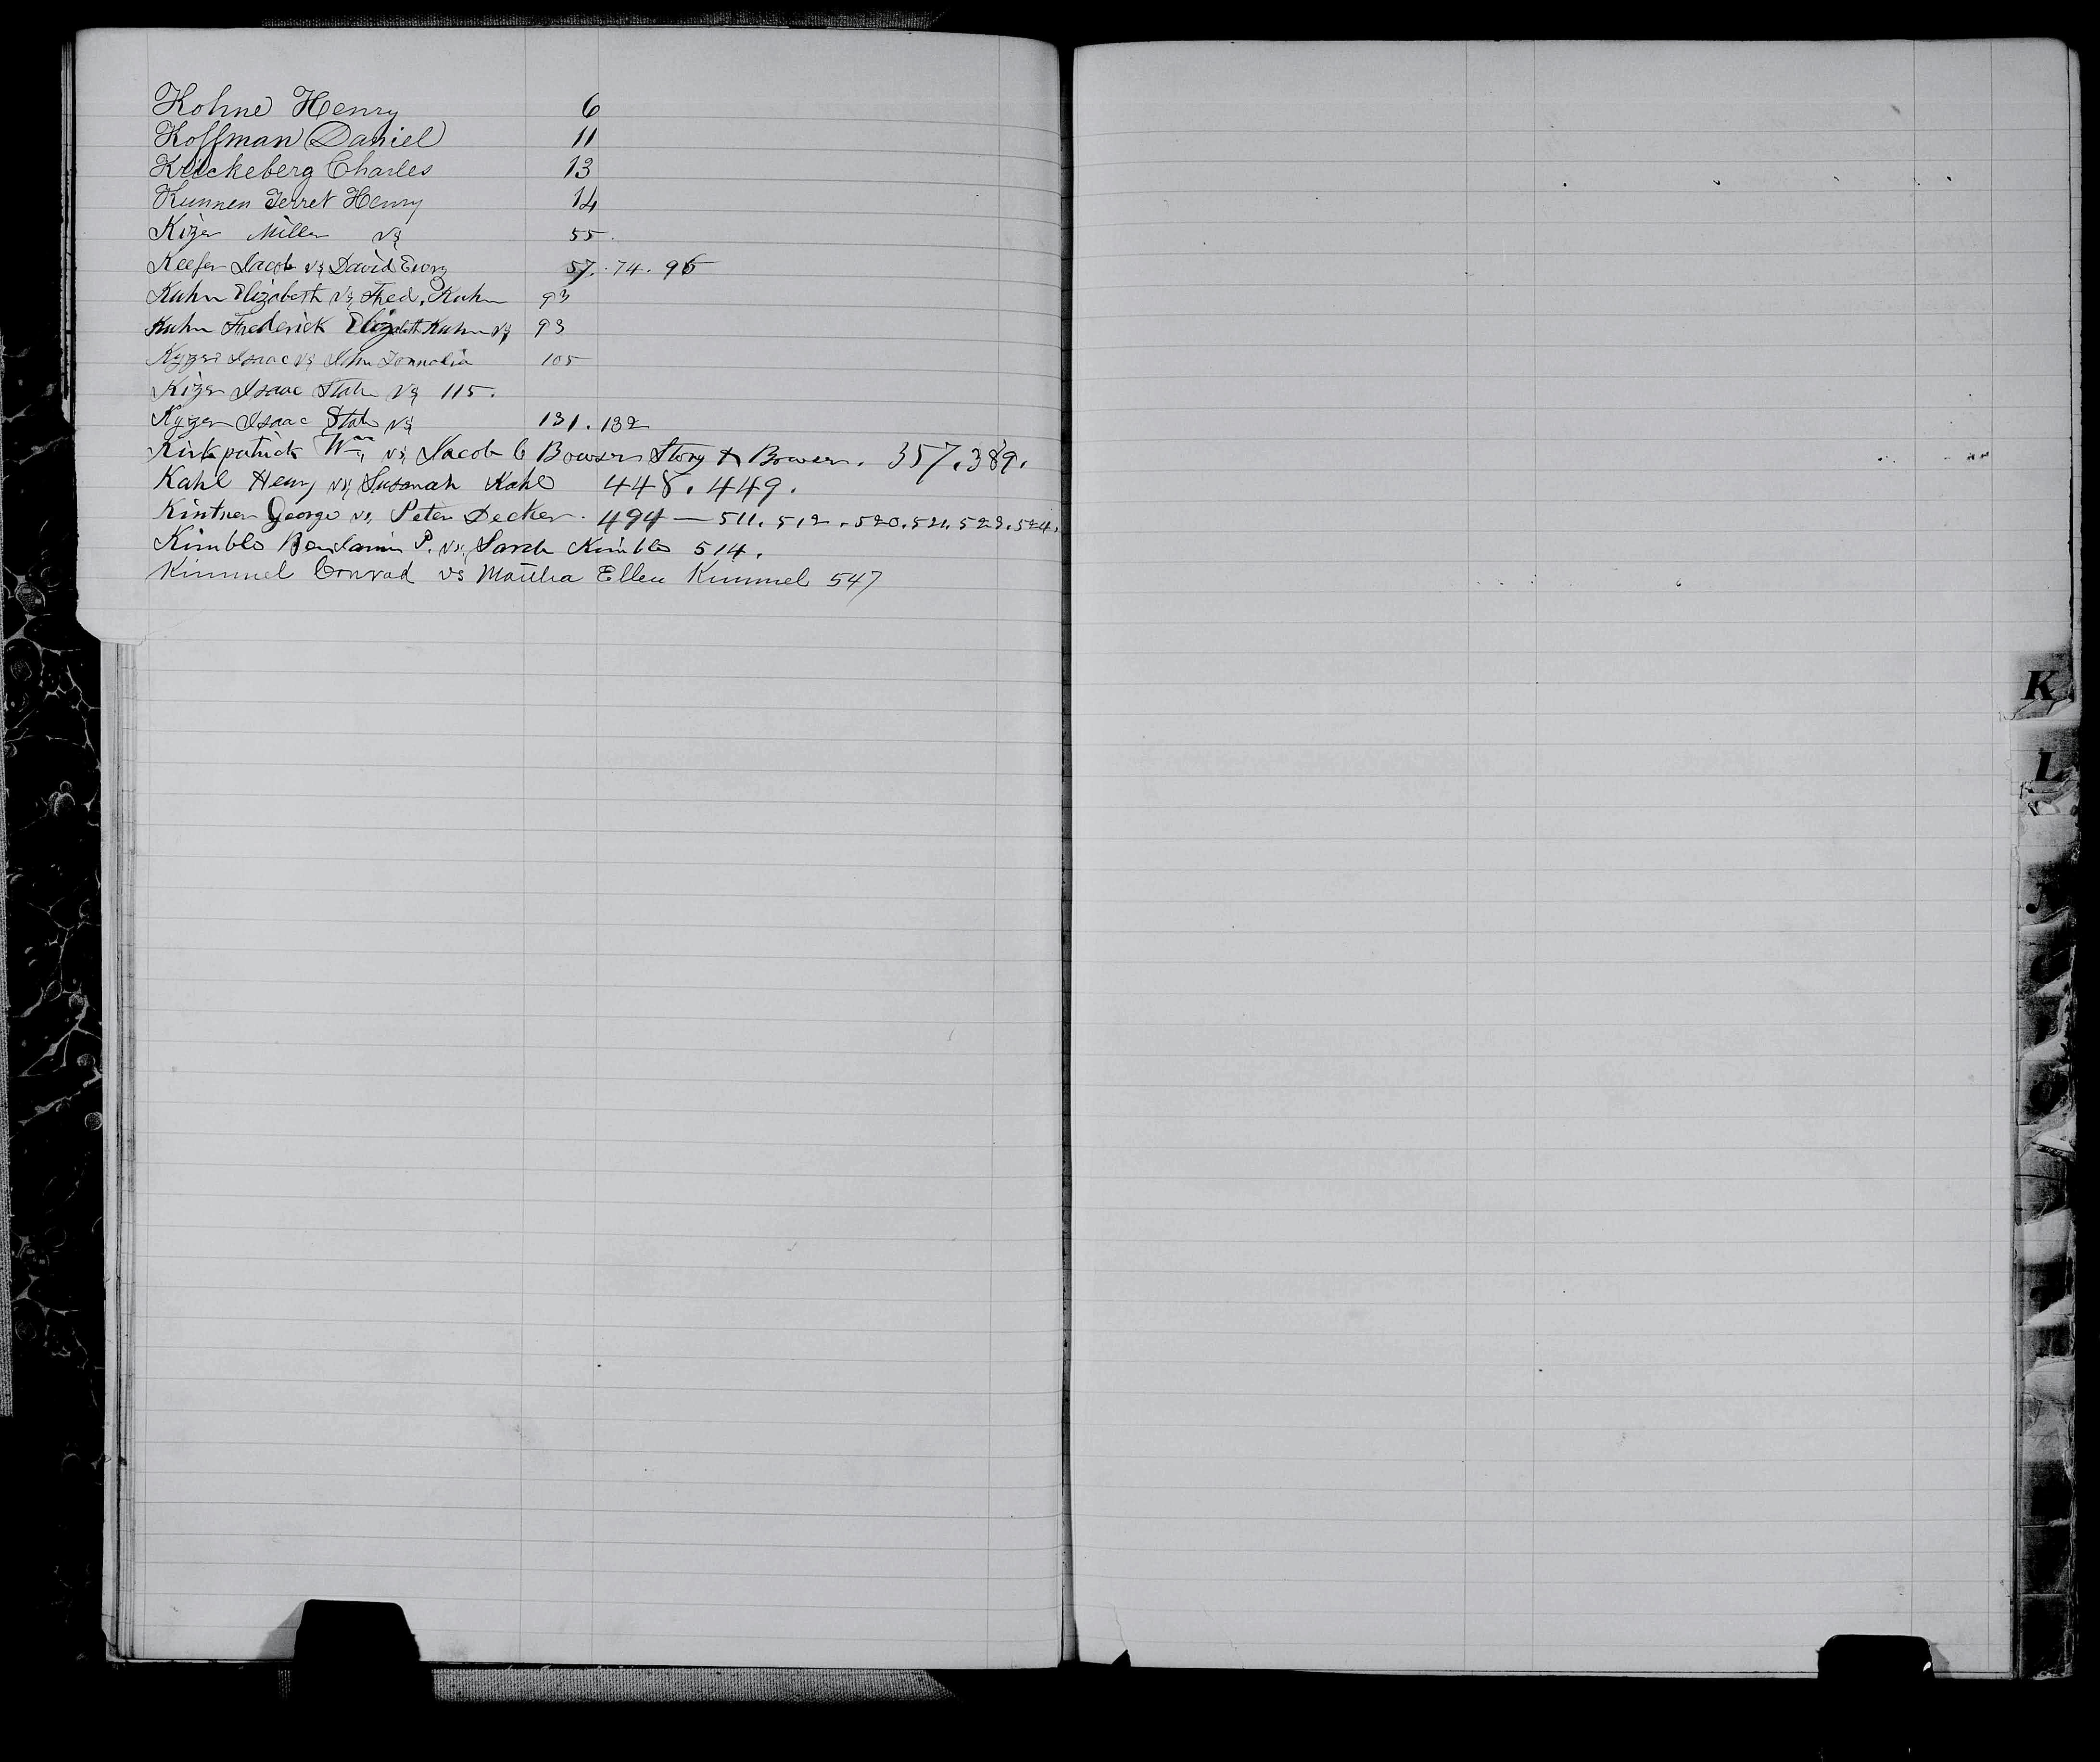 Kohne Henry 6
Koffman Daniel 11
Krickeberg Charles 13
Kunnen Jerret Henry 14
Kizer Miller vs 55.
Keefer Jacob vs David 57. 74. 95
Kuhn Elizabeth vs Fred. Kuhn 93
Kuhn Frederick Elizabeth Kuhn vs 93
Kyzer Isaac vs John 105
Kizer Isaac State vs 115.
Kyzer Isaac State vs 131. 132
Kirkpatrick Wm vs Jacob C Bowser Story & Bowser. 357.389.
Kahl Henry vs Susanah Kahl 448. 449.
Kintner George vs, Peter Decker. 494 — 511. 512. 520. 521. 523. 524.
Kimble Benjamin P. vs. Sarah Kimble 514.
Kimmel Conrad vs Martha Ellen Kimmel 547
K
L